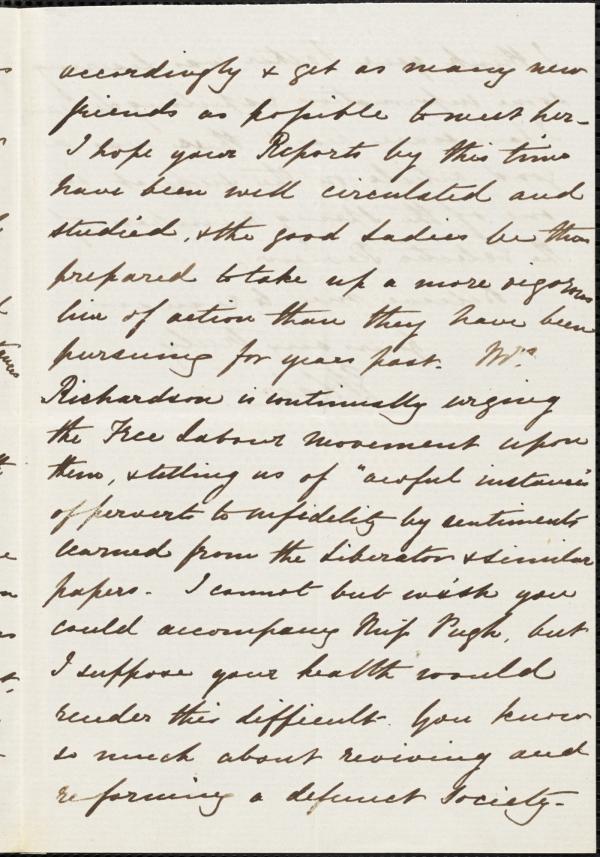 accordingly & get as many new
friends as possible to meet her -
I hope your Reports by this time
have been well circulated and
studied, & the good Ladies be thus
prepared to take up a more vigorous
line of action than they have been
pursuing for years past. Mrs.
Richardson is continually urging
the Free Labour movement upon
them, & telling us of "awful instances"
of perverts to infidelity by sentiments
learned from the Liberator & similar
papers - I cannot but wish you
could accompany Miss Pugh, but
I suppose your health would
render this difficult. You know
so much about reviving and
reforming a defunct Society -